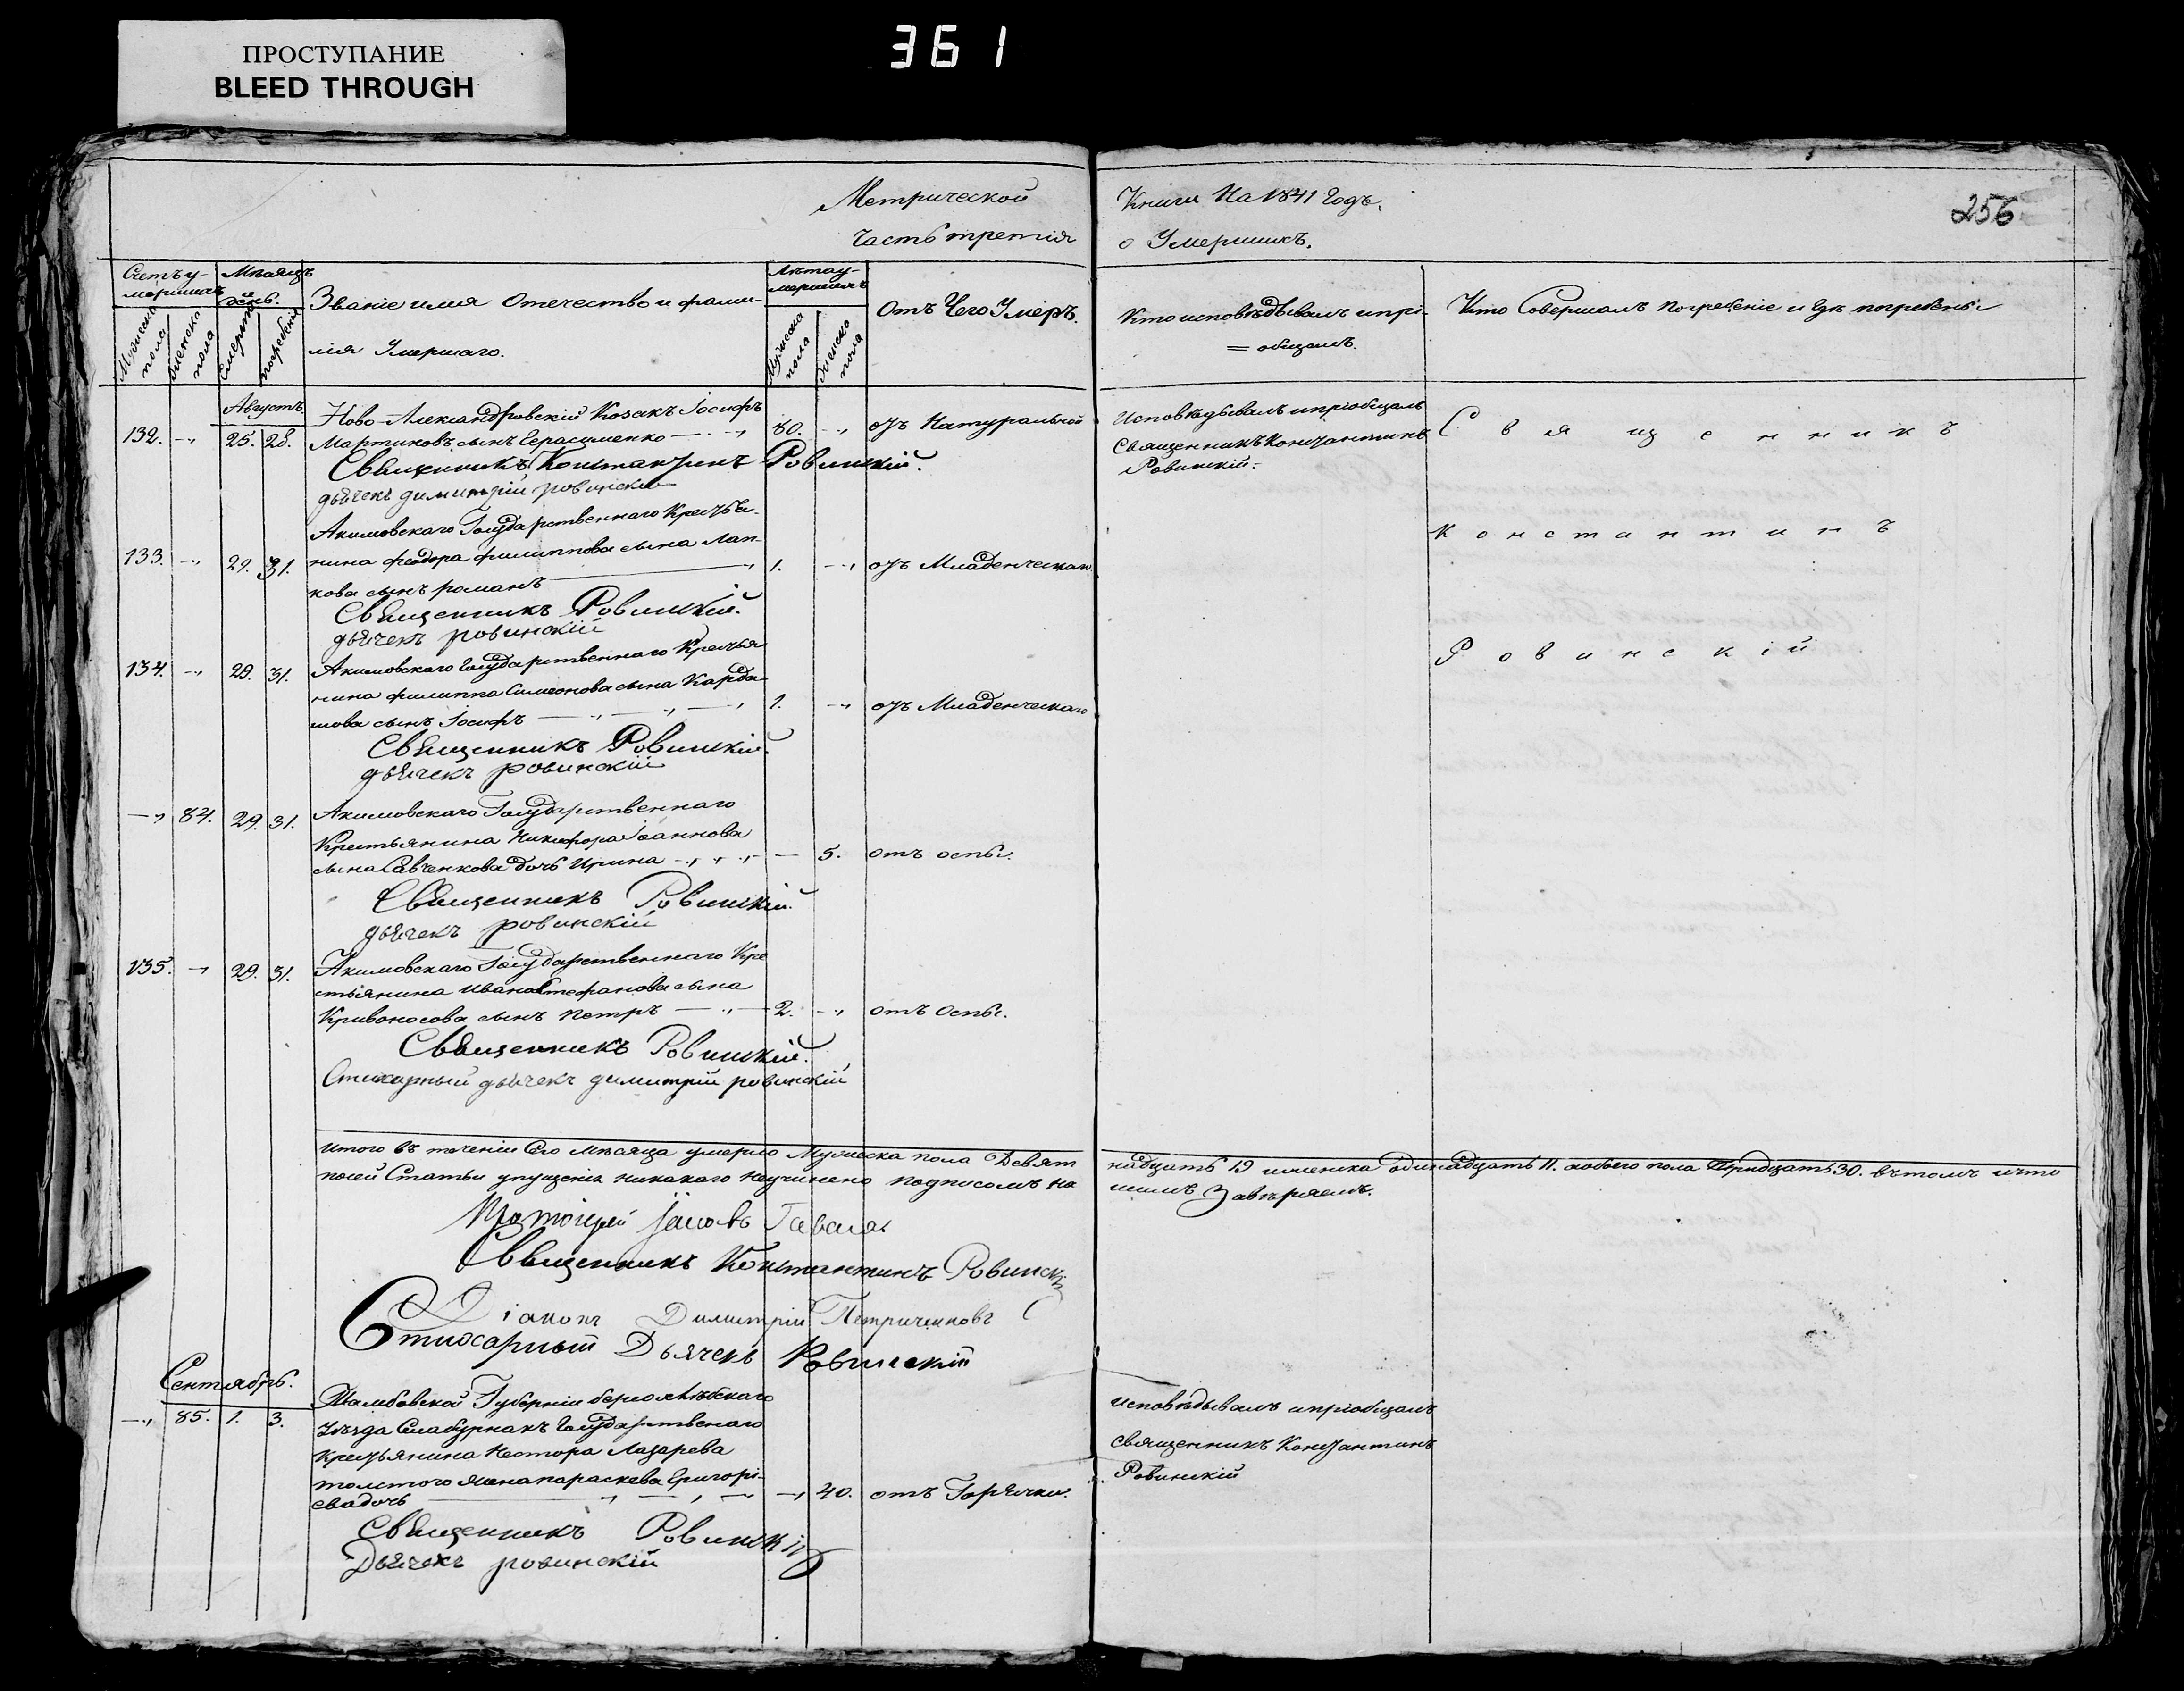 ПРОСТУПАНИЕ
BLEED THROUGH
361
Метрической
Книги На 1841 Годъ.
256
часть третія
о Умершихъ.
Счетъ у-
мершихъ
Мѣсяцъ
день.
Званіе имя Отечество и фами-
лія Умершаго.
Лѣта у-
мершихъ
Отъ Чего Умеръ.
Кто исповѣдывалъ и прі-
= общалъ.
Кто Совершалъ погребеніе и Гдѣ погребены
Мужеска пола
женска пола
Смерти
погребенія
Мужеска пола
женска пола
Августъ
132. 25. 28.
Ново-Александровскій Козакъ Іосифъ
Мартиновъ сынъ Герасименко
80.
отъ Натуральной
Исповѣдывалъ и пріобщалъ
Священникъ Константинъ
Ровинскій.
Священникъ
Константинъ
Ровинскій
Священникъ Константинъ Ровинскій.
дьячекъ димитрій ровинскій
133. 29. 31.
Акимовскаго Государственнаго Крестья-
нина феодора филиппова сына Лап-
кова сынъ романъ
1.
отъ Младенческаго
Священникъ Ровинскій.
дьячекъ ровинскій
134. 29. 31.
Акимовскаго Государственнаго Крестья
нина филиппа Симеонова сына Карда
шова сынъ Іосифъ
1.
отъ Младенческаго
Священникъ Ровинскій.
дьячекъ ровинскій
84. 29. 31.
Акимовскаго Государственнаго
Крестьянина Никифора Іоаннова
сына Савченкова дочь Ирина
5.
отъ оспы.
Священникъ Ровинскій.
дьячекъ ровинскій
135. 29. 31.
Акимовскаго Государственнаго Кре
стьянина Ивана Стефанова сына
Кривоносова сынъ Петръ
2.
отъ Оспы.
Священникъ Ровинскій.
Стихарный дьячекъ димитрій ровинскій
Итого въ теченіи Сего мѣсяца умерло Мужеска пола Девят
надцать 19 и женска одинадцать 11. а обоего пола Тридцать 30. въ томъ и что
посей Статьи упущенія никакого неучинено подписомъ на
шимъ Завѣряемъ.
Протоіерей Іаковъ
Священникъ Константинъ Ровинскій
Діаконъ Димитрій Петриченковъ
Стихарный Дьячекъ Ровинскій
Сентябрь.
85. 1. 3.
Тамбовской Губерніи
Уѣзда Государственнаго
Крестьянина Нестора Лазарева
толстого жена параскева Григорі-
ева дочь
40.
отъ Горячки.
Исповѣдывалъ и пріобщалъ
священникъ Константинъ
Ровинскій
Священникъ Ровинскій
Дьячекъ ровинскій